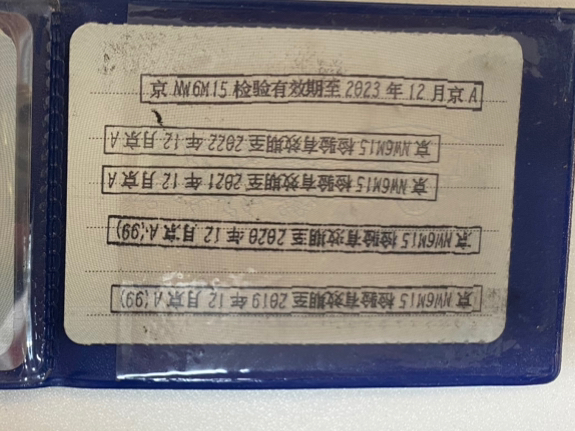 京 NW6M15 检验有效期至 2023 年 12 月京 A
京 NW6M15 检验有效期至 2022 年 12 月京 A
京 NW6M15 检验有效期至 2021 年 12 月京 A
京 NW6M15 检验有效期至 2020 年 12 月京 A(99)
京 NW6M15 检验有效期至 2019 年 12 月京 A(99)